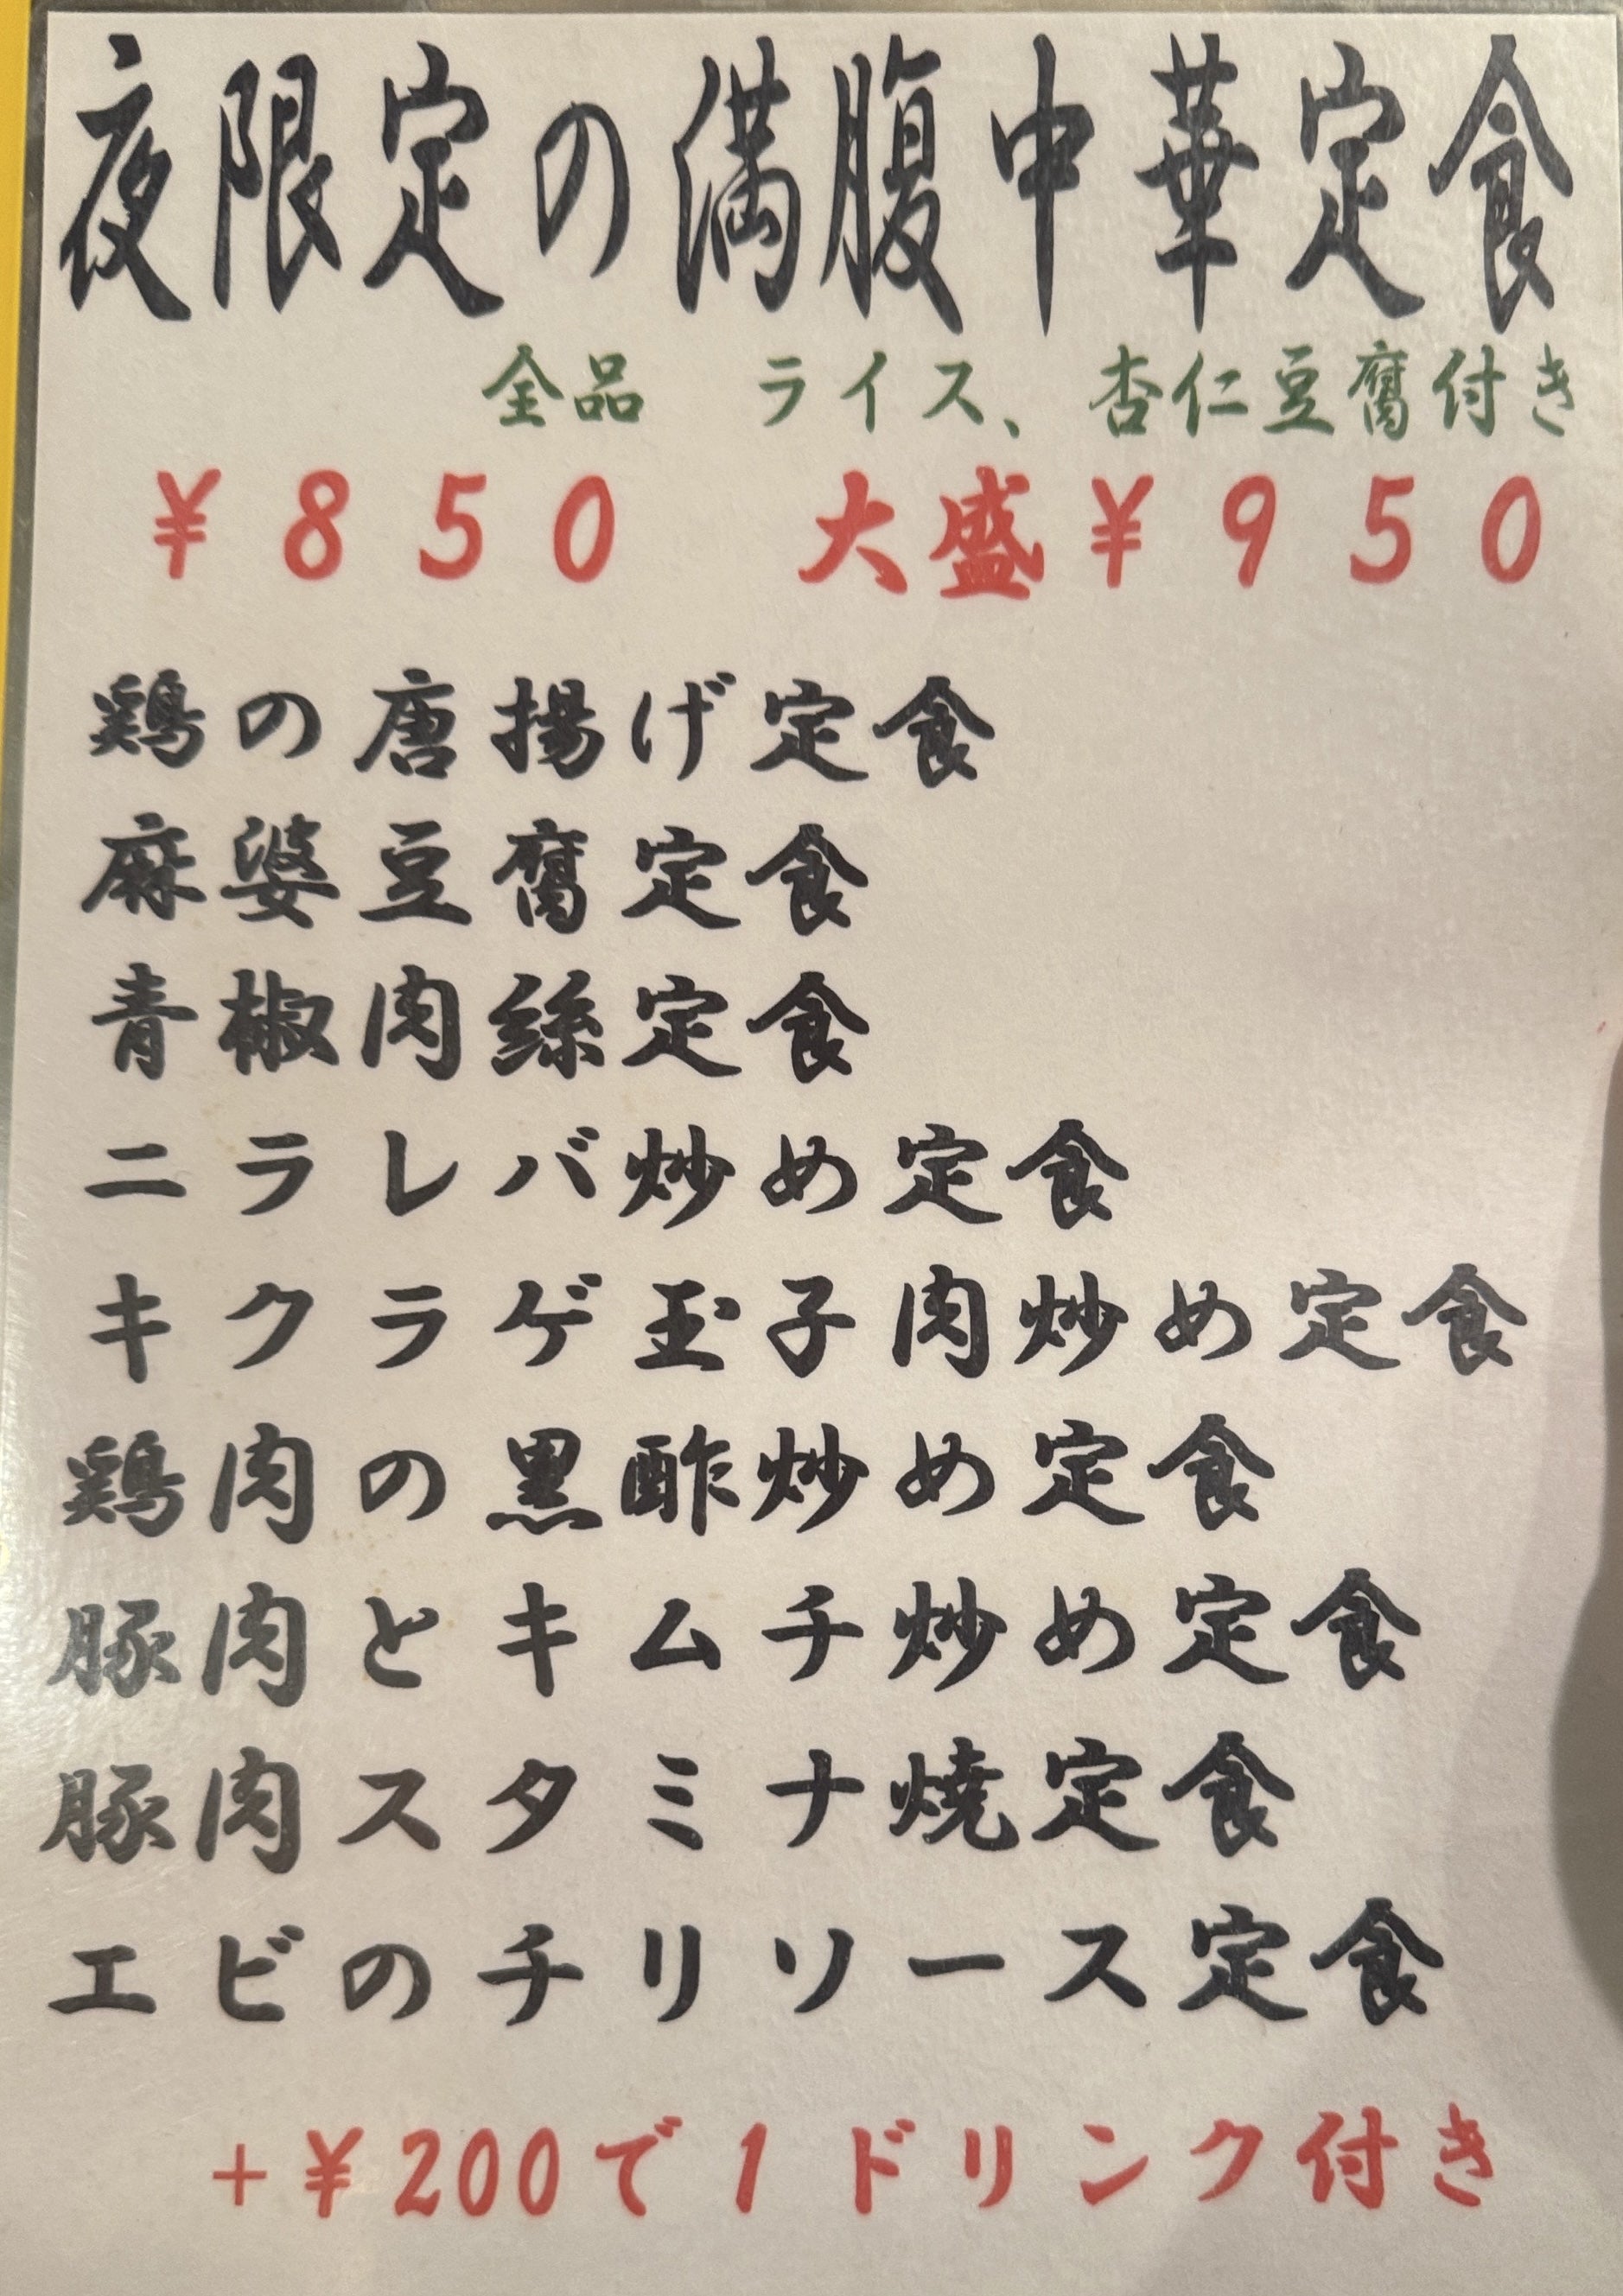 夜限定の満腹中華定食
全品　ライス、杏仁豆腐付き
￥８５０　大盛￥９５０
鶏の唐揚げ定食
麻婆豆腐定食
青椒肉絲定食
ニラレバ炒め定食
キクラゲ玉子肉炒め定食
鶏肉の黒酢炒め定食
豚肉とキムチ炒め定食
豚肉スタミナ焼定食
エビのチリソース定食
＋￥200で１ドリンク付き